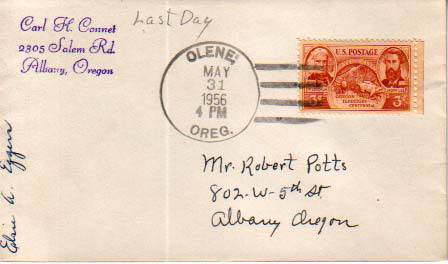 Carl H. Connet
2805 Salem Rd.
Albany, Oregon
Last Day
OLENE,
MAY
31
1956
4 PM
OREG.
U.S. POSTAGE
3¢ 3¢
OREGON
TERRITORY
CENTENNIAL
Mr. Robert Potts
802-W-5th St.
Albany Oregon
Elsie A. Eggers